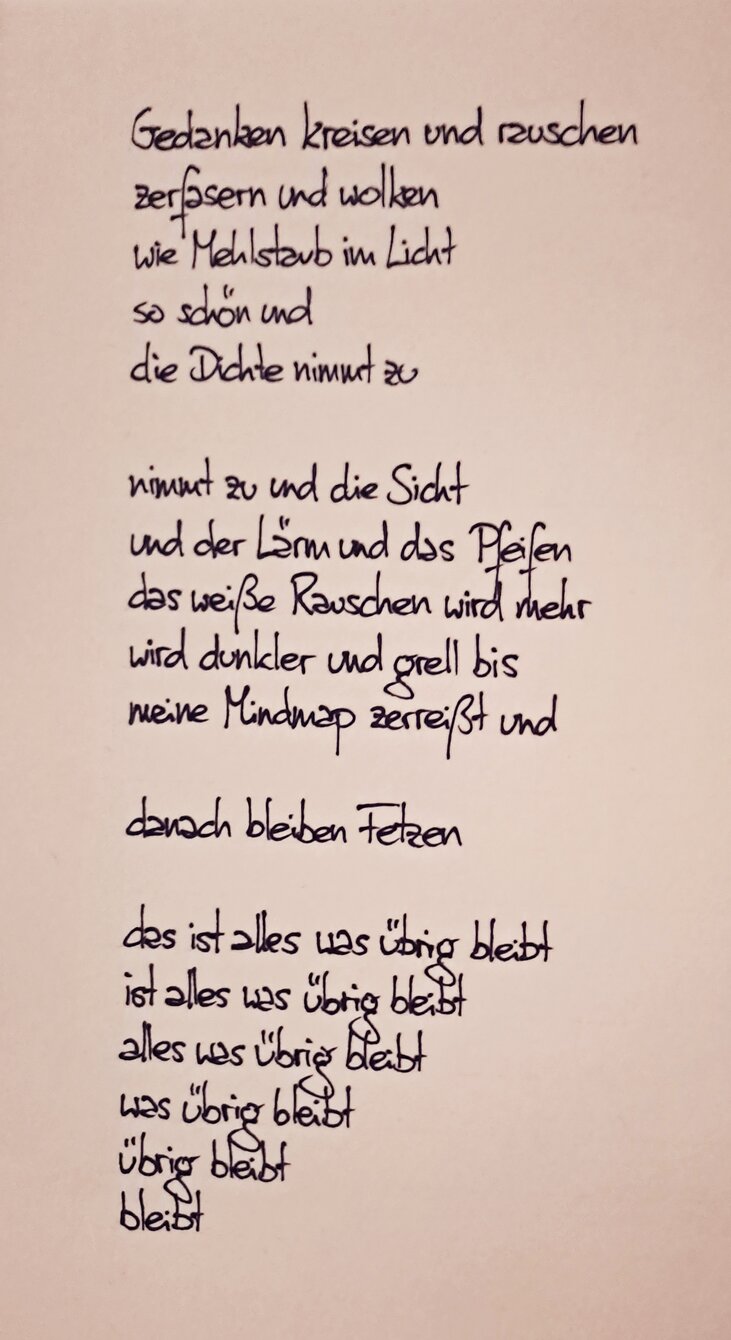 Gedanken kreisen und rauschen
zerfasern und wolken
wie Mehlstaub im Licht
so schön und
die Dichte nimmt zu
nimmt zu und die Sicht
und der Lärm und das Pfeifen
das weiße Rauschen wird mehr
wird dunkler und grell bis
meine Mindmap zerreißt und
danach bleiben Fetzen
das ist alles was übrig bleibt
ist alles was übrig bleibt
alles was übrig bleibt
was übrig bleibt
übrig bleibt
bleibt